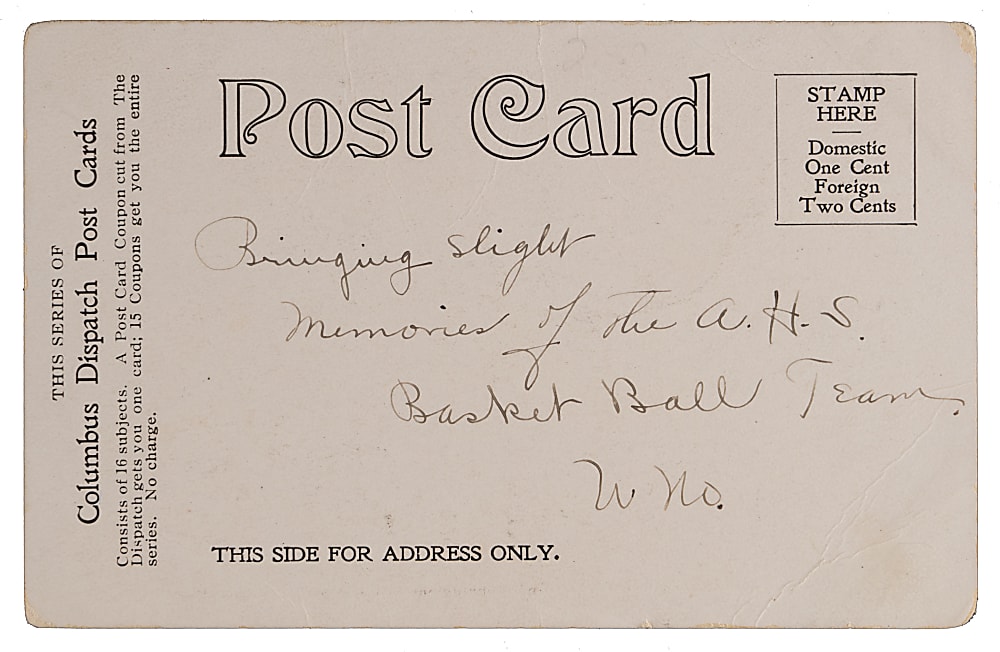 THIS SERIES OF
Columbus Dispatch Post Cards
Consists of 16 subjects. A Post Card Coupon cut from The
Dispatch gets you one card; 15 Coupons get you the entire
series. No charge.
Post Card
STAMP
HERE
Domestic
One Cent
Foreign
Two Cents
Bringing slight
Memories of the A. H. S.
Basket Ball Team.
THIS SIDE FOR ADDRESS ONLY.